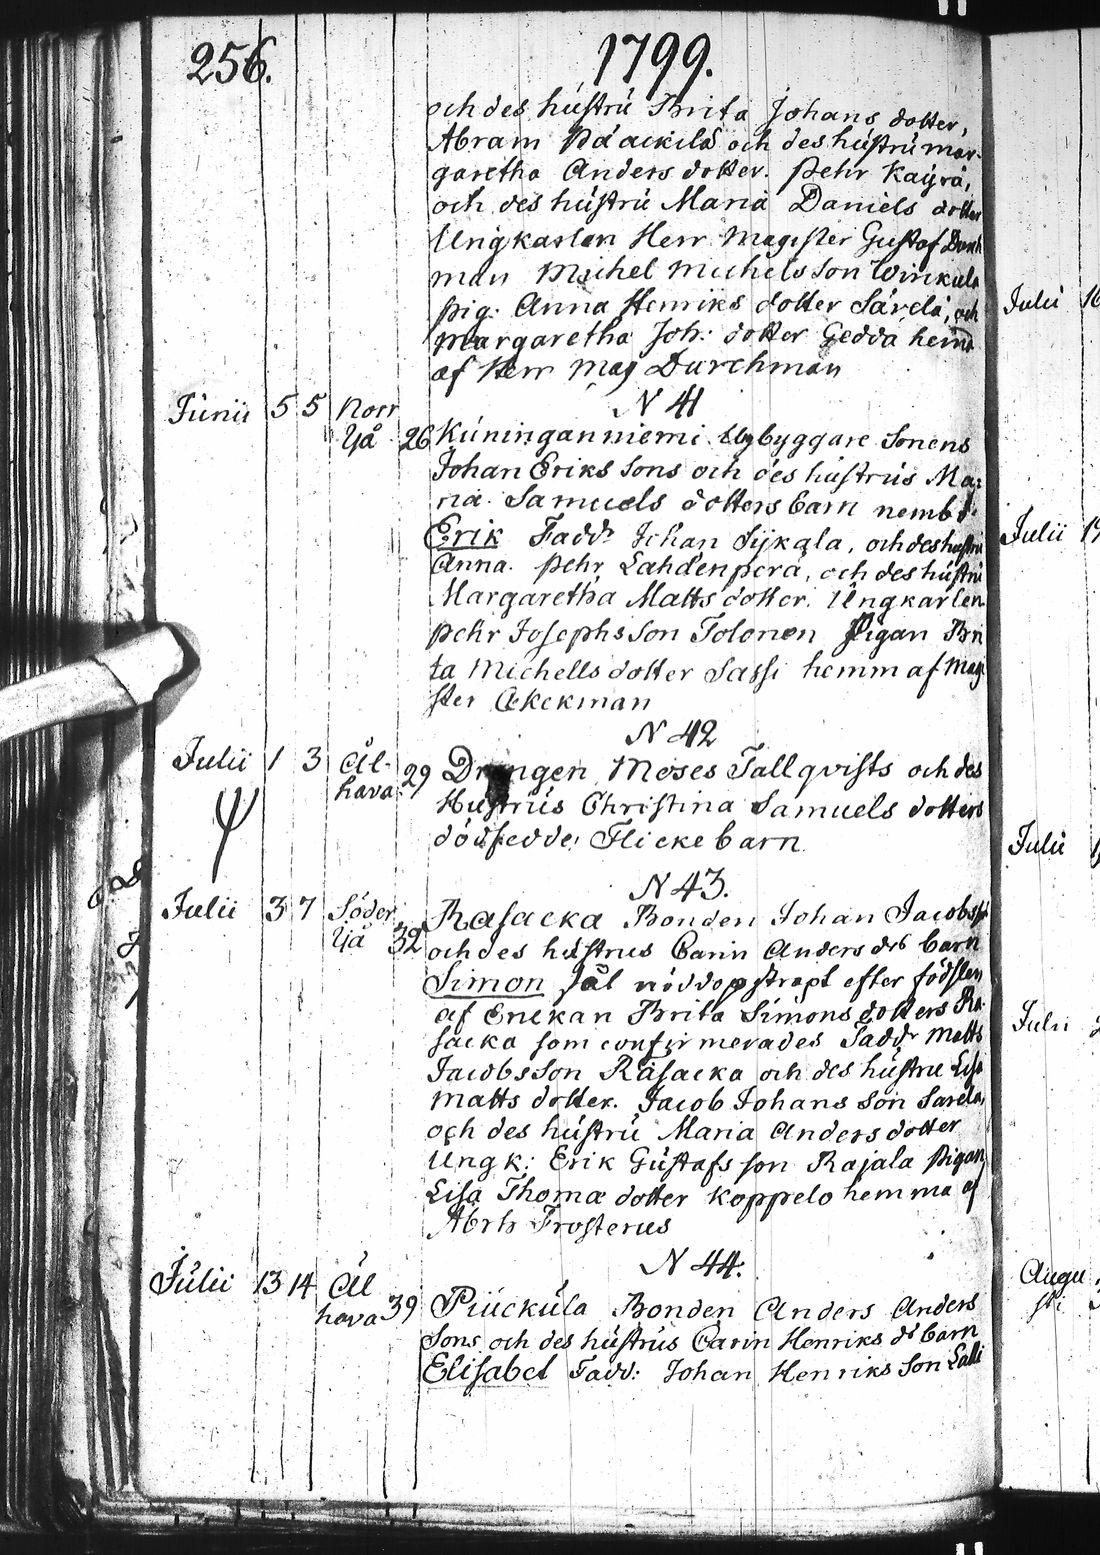 256.
1799.
och des hustru Brita Johans dotter,
Abram Pdackilä och des hustru mar-
garetha Anders dotter. Pehr Kaÿrä,
och des hustru Maria Daniels dotter
Ungkarlen Herr Magister Gustaf Durch
man Michel Michelsson Winckula
pig. Anna Henriks dotter Särelä, och
Margaretha Joh: dotter Gedda hemd
af Herr Mag Durchman
N 41
Junii 5 5 Norr Yå 26 Kuninganniemi Nybyggare Sonens
Johan Eriks Sons och des hustrus Ma:
ria Samuels dotters barn nembd.
Erik Fadd: Johan Sijkala, och des hustru
Anna. Pehr Lahdenperä, och des hustru
Margaretha Matts dotter. Ungkarlen
Pehr Josephsson Tolonen Pigan Bri
ta Michells dotter Sassi hemm af Magi
ster Ekckman
N 42
Julii 1 3 Ål- hava 29 Drengen Moses Tallqvists och des
Hustrus Christina Samuels dotters
dödfedde Flickebarn
N 43.
Julii 3 7 Söder Yå 32 Rasacka Bonden Johan Jacobss
och des hustrus Carin Anders drs barn
Simon Jäl nöddopstropt efter födslen
af Enekan Brita Simons dotters Ra-
sacka som confirmerades Fadd: Matts
Jacobsson Räsacka och des hustru Lisa
Matts dotter. Jacob Johansson Sarela,
och des hustru Maria Anders dotter
Ungk: Erik Gustafsson Rajala Pigan
Lisa Thomæ dotter Koppelo hemma af
Abrh Frosterus
N 44.
Julii 13 14 Ål hava 39 Piuckula Bonden Anders Anders
Sons och des hustrus Carin Henriks ds barn
Elisabet Fadd: Johan Henriks Son Lalli
Julii 16
Julii
Julii
Julii
Augu
sti